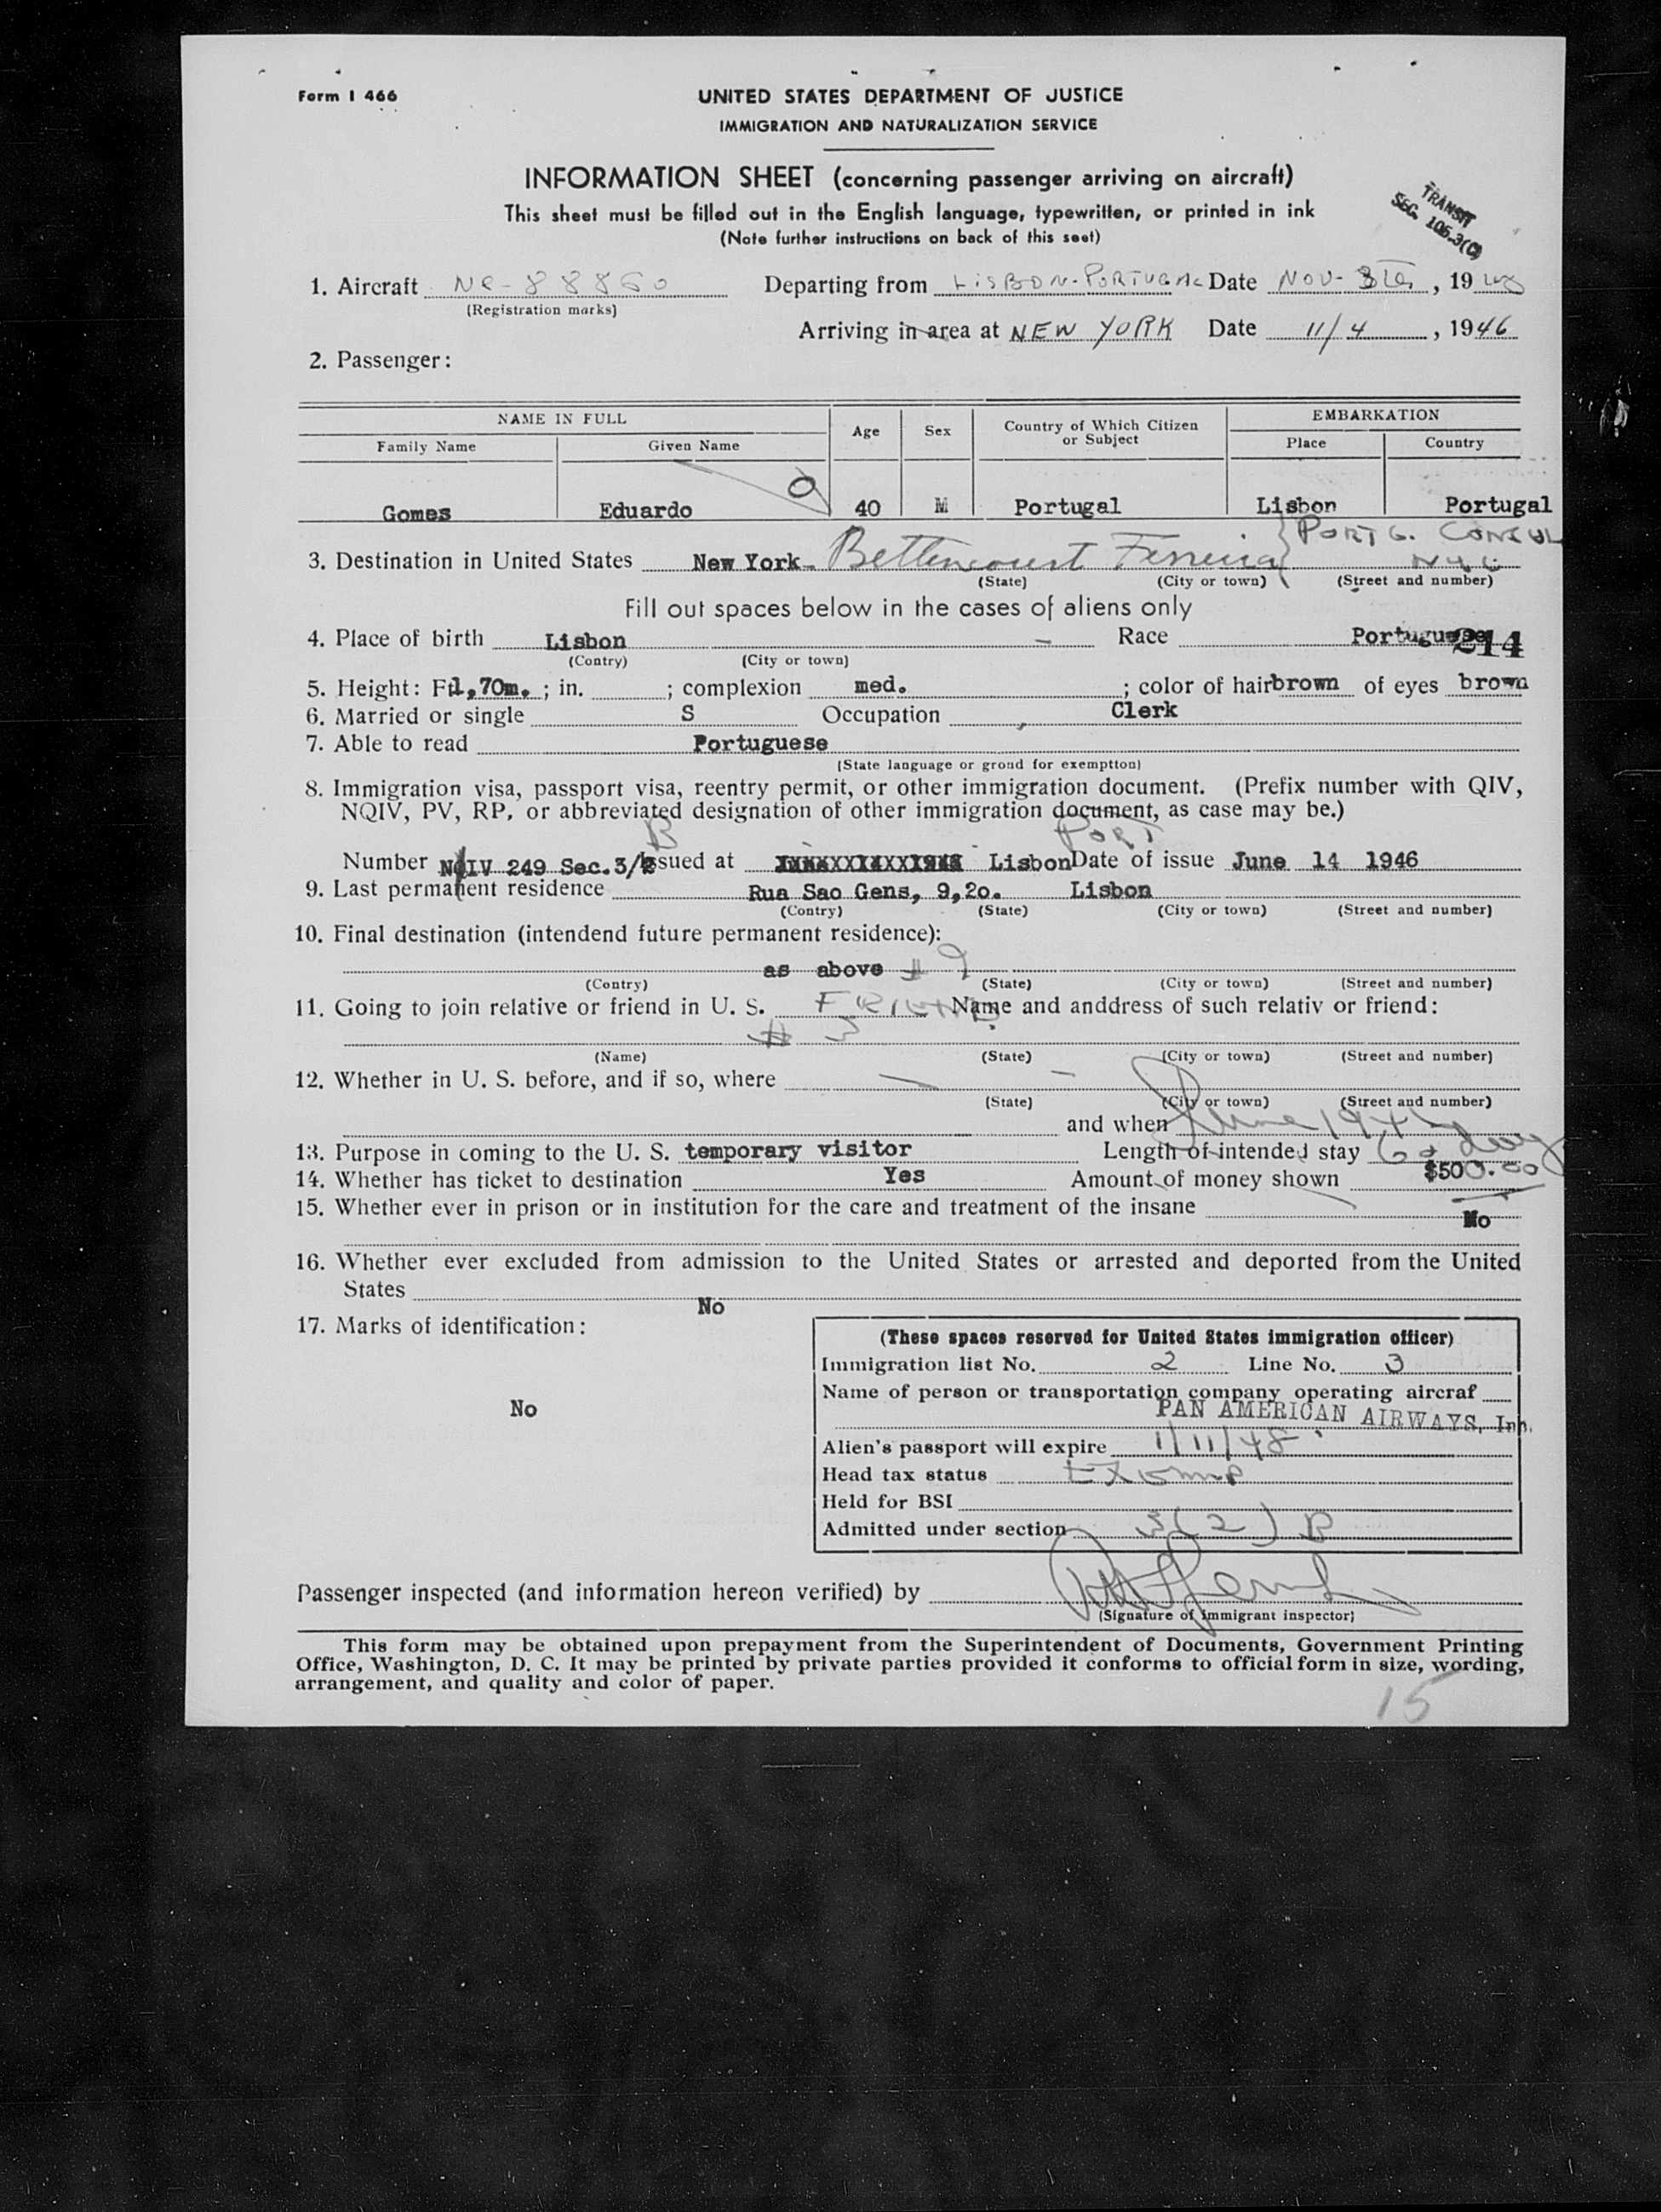 Form I 466
UNITED STATES DEPARTMENT OF JUSTICE
IMMIGRATION AND NATURALIZATION SERVICE
INFORMATION SHEET (concerning passenger arriving on aircraft)
This sheet must be filled out in the English language, typewritten, or printed in ink
(Note further instructions on back of this seet)
TRANSIT
SEC. 105.3(C)
1. Aircraft NC-88860 Departing from LISBON-PORTUGAL Date NOV- , 19
(Registration marks)
Arriving in area at NEW YORK Date 11/4, 1946
2. Passenger:
NAME IN FULL Age Sex Country of Which Citizen or Subject EMBARKATION
Family Name Given Name Place Country
Gomes Eduardo 40 M Portugal Lisbon Portugal
PORTG. CONSUL
3. Destination in United States New York- Bettencourt Ferreira NYC
(State) (City or town) (Street and number)
Fill out spaces below in the cases of aliens only
4. Place of birth Lisbon - Race Portuguese 214
(Contry) (City or town)
5. Height: Ft 1,70m. ; in. ; complexion med. ; color of hair brown of eyes brown
6. Married or single S Occupation Clerk
7. Able to read Portuguese
(State language or groud for exemptton)
8. Immigration visa, passport visa, reentry permit, or other immigration document. (Prefix number with QIV,
NQIV, PV, RP, or abbreviated designation of other immigration document, as case may be.)
B PORT
Number NQIV 249 Sec.3/2 Issued at Lisbon Date of issue June 14 1946
9. Last permanent residence Rua Sao Gens, 9,2o. Lisbon
(Contry) (State) (City or town) (Street and number)
10. Final destination (intendend future permanent residence):
as above # 9
(Contry) (State) (City or town) (Street and number)
11. Going to join relative or friend in U. S. FRIEND Name and anddress of such relativ or friend:
# 3
(Name) (State) (City or town) (Street and number)
12. Whether in U. S. before, and if so, where - -
(State) (City or town) (Street and number)
and when
13. Purpose in coming to the U. S. temporary visitor Length of intended stay 60 days
14. Whether has ticket to destination Yes Amount of money shown $500.00
15. Whether ever in prison or in institution for the care and treatment of the insane No
16. Whether ever excluded from admission to the United States or arrested and deported from the United
States No
17. Marks of identification:
No
(These spaces reserved for United States immigration officer)
Immigration list No. 2 Line No. 3
Name of person or transportation company operating aircraf
PAN AMERICAN AIRWAYS, Inc.
Alien's passport will expire 1/11/48
Head tax status Exemp
Held for BSI
Admitted under section 3(2) B
Passenger inspected (and information hereon verified) by
(Signature of immigrant inspector)
This form may be obtained upon prepayment from the Superintendent of Documents, Government Printing
Office, Washington, D. C. It may be printed by private parties provided it conforms to official form in size, wording,
arrangement, and quality and color of paper.
15